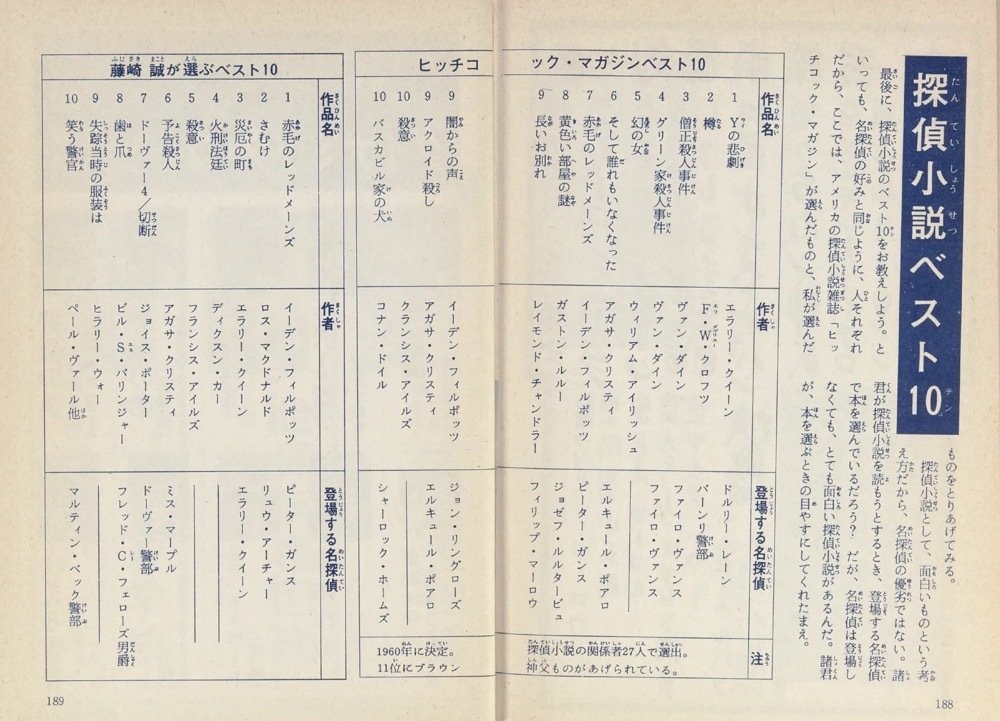 探偵小説ベスト10
最後に、探偵小説のベスト10をお教えしよう。と
いっても、名探偵の好みと同じように、人それぞれ
だから、ここでは、アメリカの探偵小説雑誌「ヒッ
チコック・マガジン」が選んだものと、私が選んだ
ものをとりあげてみる。
探偵小説として、面白いものという考
え方だから、名探偵の優劣ではない。諸
君が探偵小説を読もうとするとき、登場する名探偵
で本を選んでいるだろう？ だが、名探偵は登場し
なくても、とても面白い探偵小説があるんだ。諸君
が、本を選ぶときの目やすにしてくれたまえ。
ヒッチコック・マガジンベスト10
作品名 作者 登場する名探偵 注
1 Yの悲劇 エラリー・クイーン ドルリー・レーン
2 樽 F・W・クロフツ バーンリ警部
3 僧正殺人事件 ヴァン・ダイン ファイロ・ヴァンス
4 グリーン家殺人事件 ヴァン・ダイン ファイロ・ヴァンス
5 幻の女 ウィリアム・アイリッシュ
6 そして誰れもいなくなった アガサ・クリスティ
7 赤毛のレッドメーンズ イーデン・フィルポッツ ピーター・ガンス
8 黄色い部屋の謎 ガストン・ルルー ジョゼフ・ルルタービュ
9 長いお別れ レイモンド・チャンドラー フィリップ・マーロウ
エルキュール・ポアロ
9 闇からの声 イーデン・フィルポッツ ジョン・リングローズ
9 アクロイド殺し アガサ・クリスティ エルキュール・ポアロ
10 殺意 クランシス・アイルズ
10 バスカビル家の犬 コナン・ドイル シャーロック・ホームズ
探偵小説の関係者27人で選出。
1960年に決定。
11位にブラウン
神父ものがあげられている。
藤崎 誠が選ぶベスト10
作品名 作者 登場する名探偵
1 赤毛のレッドメーンズ イーデン・フィルポッツ ピーター・ガンス
2 さむけ ロス・マクドナルド リュウ・アーチャー
3 災厄の町 エラリー・クイーン エラリー・クイーン
4 火刑法廷 ディクスン・カー
5 殺意 フランシス・アイルズ
6 予告殺人 アガサ・クリスティ ミス・マープル
7 ドーヴァー4／切断 ジョイス・ポーター ドーヴァー警部
8 歯と爪 ビル・S・バリンジャー
9 失踪当時の服装は ヒラリー・ウォー フレッド・C・フェローズ男爵
10 笑う警官 ペール・ヴァール他 マルティン・ベック警部
189
188